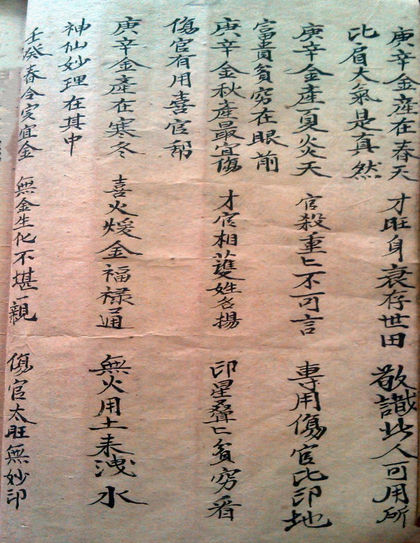 庚辛金產在春天 才旺身衰存世田 敬識此人可用所
比肩大氣是真然
庚辛金產夏炎天 官殺重〻不可言 專用傷官比印地
富貴貧穷在眼前
庚辛金秋產最宜傷 才官相䕶姓名揚 印星疊〻貧穷看
傷官有用喜官
庚辛金產在寒冬 喜火煖金福禄通 無火用土来洩水
神仙妙理在其中
壬癸春令宜金 無金生化不堪親 傷官太旺無妙印